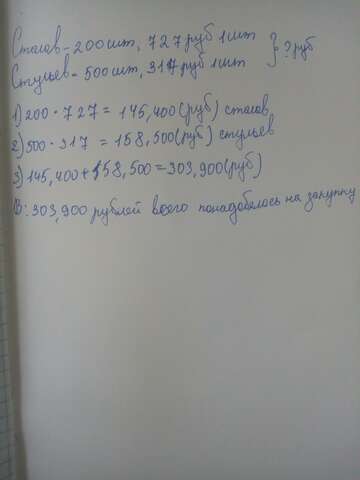 Столов - 200 шт, 727 руб 1 шт } ? руб
Стульев - 500 шт, 317 руб 1 шт
1) 200 · 727 = 145,400 (руб) столов
2) 500 · 317 = 158,500 (руб) стульев
3) 145,400 + 158,500 = 303,900 (руб)
В: 303,900 рублей всего понадобилось на закупку